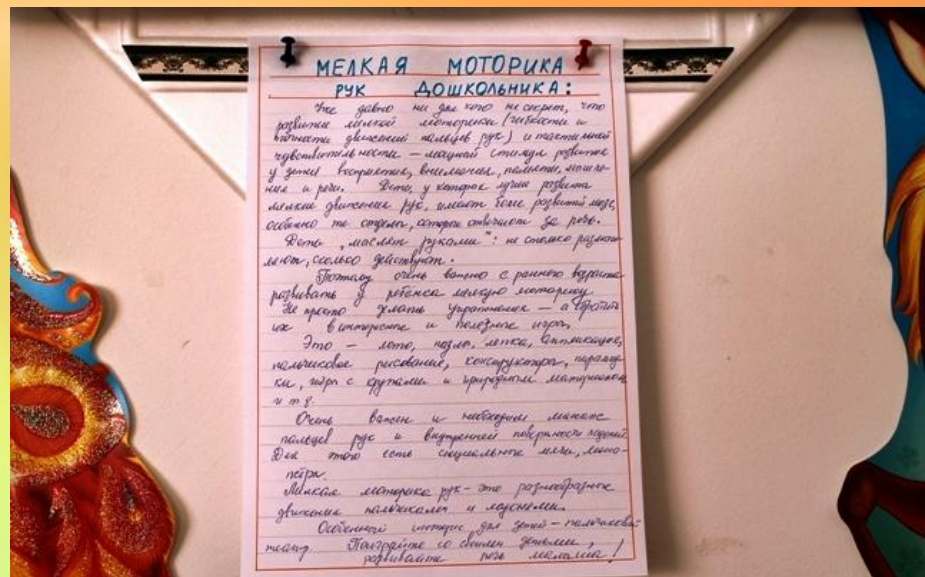 МЕЛКАЯ МОТОРИКА
РУК ДОШКОЛЬНИКА:
Уже давно ни для кого не секрет, что
развитие мелкой моторики (гибкости и
точности движений пальцев рук) и тактильной
чувствительности – мощный стимул развития
у детей восприятия, внимания, памяти, мышле-
ния и речи. Дети, у которых лучше развиты
мелкие движения рук, имеют более развитый мозг,
особенно те отделы, которые отвечают за речь.
Дети „мыслят руками": не столько размыш
ляют, сколько действуют.
Поэтому очень важно с раннего возраста
развивать у ребёнка мелкую моторику.
Не просто делать упражнения – а обратить
их в интересные и полезные игры.
Это – лото, пазлы, лепка, аппликация,
пальчиковое рисование, конструкторы, пирамид
ки, игры с крупами и природным материалом
и т д.
Очень важен и необходим массаж
пальцев рук и внутренней поверхности ладоней
Для этого есть специальные мячи,
Мелкая моторика рук – это разнообразные
движения пальчиками и ладонями.
Особенный интерес для детей – пальчиковый
театр. Поиграйте со своими детьми,
развивайте речь малыша!